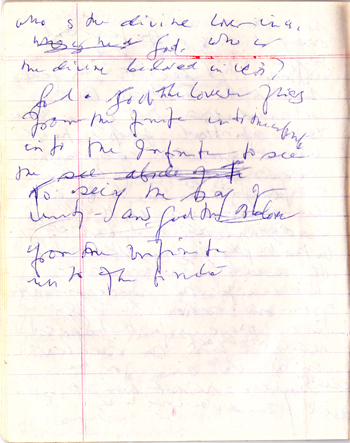 who is the divine lover in a.
God. who is
the divine beloved in us?
God. God the lover flies
from the finite into the
into the Infinite to see
the see abode of
To seize the bag of
Unity - and God the Beloved
from the Infinite
into the finite